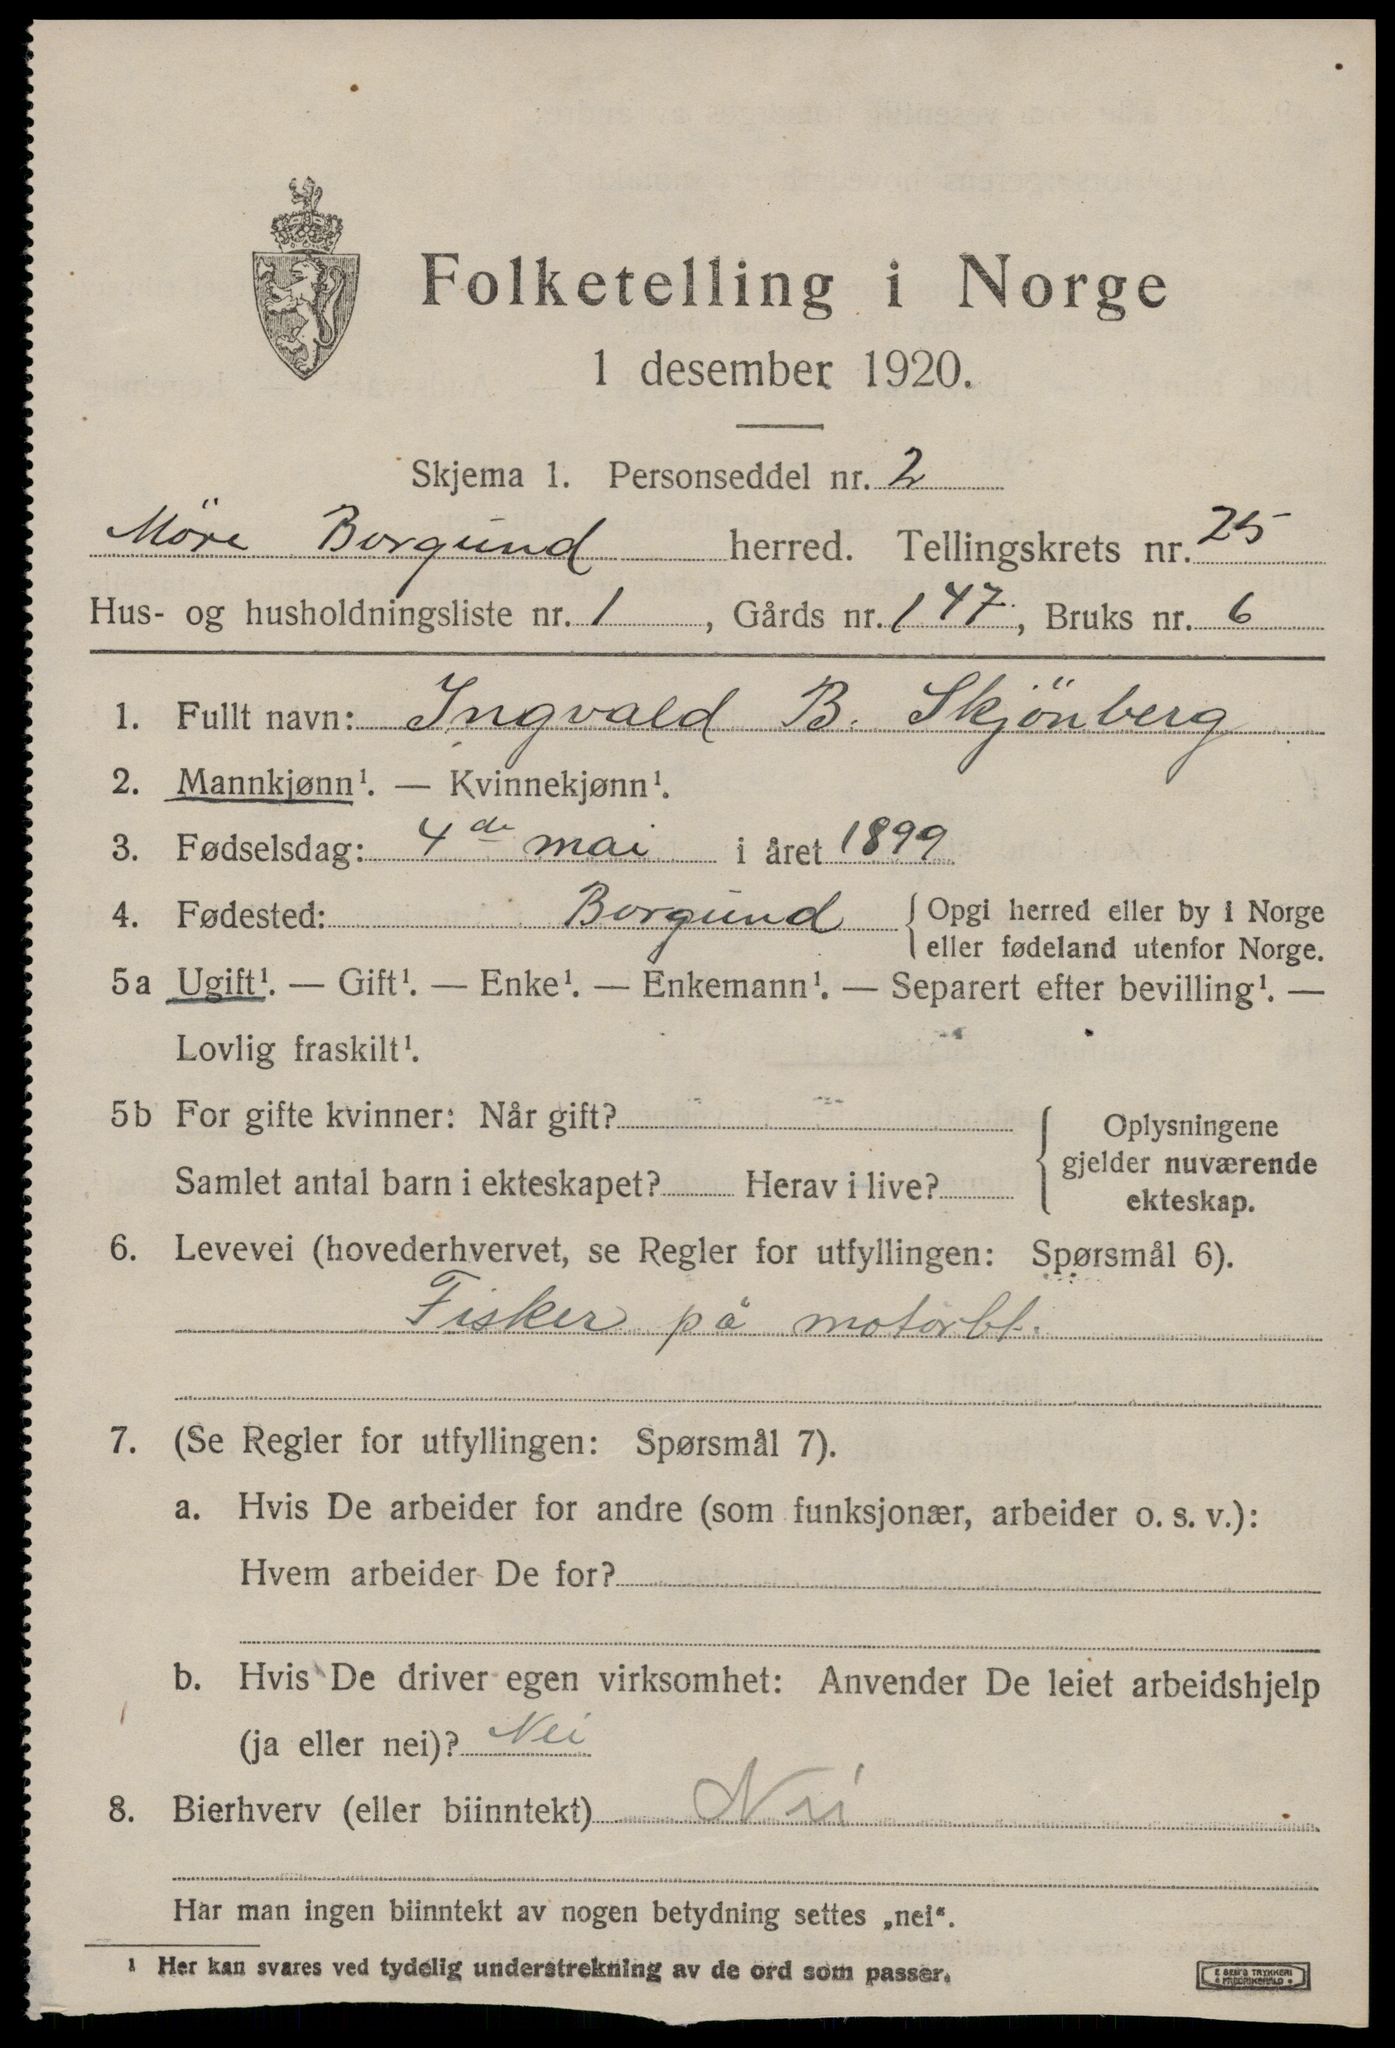 Folketelling i Norge
1 desember 1920.
Skjema 1. Personseddel nr. 2
Möre Borgund herred. Tellingskrets nr. 25
Hus- og husholdningsliste nr. 1, Gårds nr. 147, Bruks nr. 6
1. Fullt navn: Ingvald B. Skjönberg
2. Mannkjønn¹. — Kvinnekjønn¹.
3. Fødselsdag: 4de mai i året 1899
4. Fødested: Borgund { Opgi herred eller by i Norge
eller fødeland utenfor Norge.
5a Ugift¹. — Gift¹. — Enke¹. — Enkemann¹. — Separert efter bevilling¹. —
Lovlig fraskilt¹.
5b For gifte kvinner: Når gift?
Samlet antal barn i ekteskapet? Herav i live?
{ Oplysningene
gjelder nuværende
ekteskap.
6. Levevei (hovederhvervet, se Regler for utfyllingen: Spørsmål 6).
Fisker på motorbt.
7. (Se Regler for utfyllingen: Spørsmål 7).
a. Hvis De arbeider for andre (som funksjonær, arbeider o. s. v.):
Hvem arbeider De for?
b. Hvis De driver egen virksomhet: Anvender De leiet arbeidshjelp
(ja eller nei)? Nei
8. Bierhverv (eller biinntekt) Nei
Har man ingen biinntekt av nogen betydning settes „nei“.
¹ Her kan svares ved tydelig understrekning av de ord som passer.
E SEM'S TRYKKERI
FREDRIKSHALD